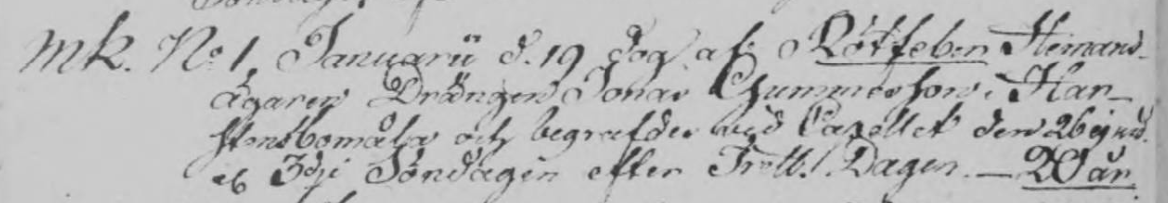 Mk. No 1. Januarii d. 19 dog af Rötfeber Hemans-
ägaren Drängen Jonas Gummesson i Har-
stensbomåla och begrafdes wid Capellet den 26
3dje Söndagen efter Trett. Dagen. — 20 år